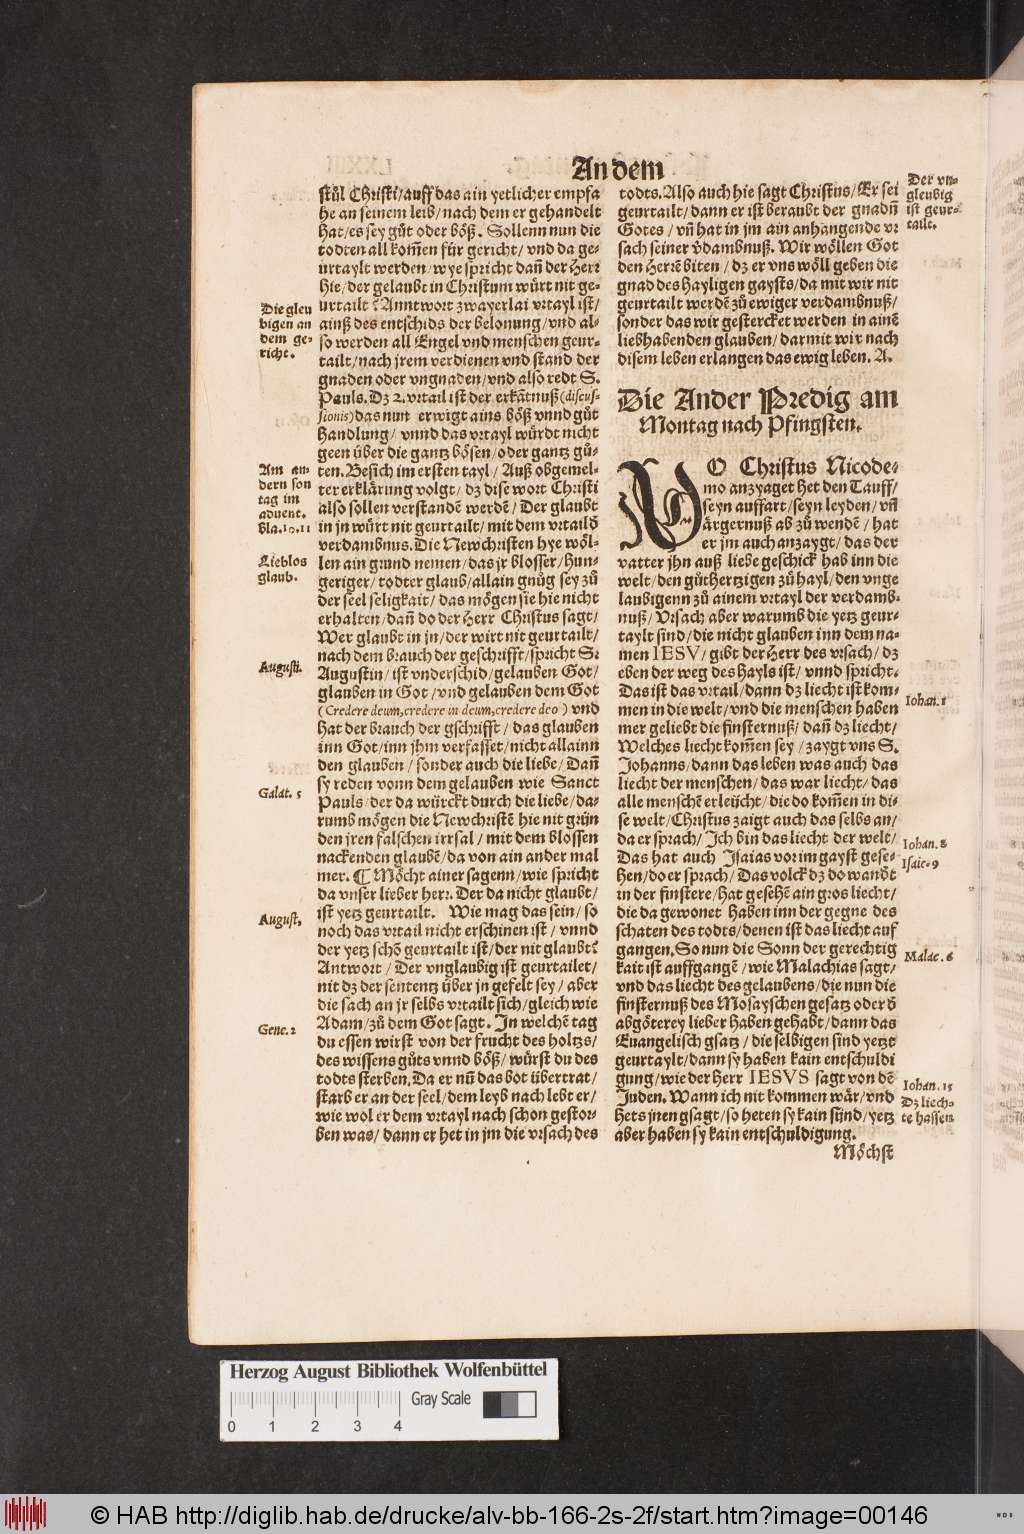 An dem
stůl Christi/auff das ain yetlicher empfa
he an seinem leib/nach dem er gehandelt
hat/es sey gůt oder böß. Sollenn nun die
todten all kom̃en für gericht/vnd da ge-
urtaylt werden/wye spricht dañ der Herr
hie/der gelaubt in Christum würt nit ge-
urtailt? Anntwort zwayerlai vrtayl ist/
ainß des entschids der belonung/vnd al-
so werden all Engel vnd menschen geur-
tailt/nach jrem verdienen vnd stand der
gnaden oder vngnaden/vnd also redt S.
Pauls. Dz 2. vrtail ist der erkãtnuß(discus-
sionis)das nun erwigt ains böß vnnd gůt
handlung/ vnnd das vrtayl würdt nicht
geen über die gantz bösen/oder gantz gů-
ten. Besich im ersten tayl/ Auß obgemel-
ter erklärung volgt/ dz dise wort Christi
also sollen verstandẽ werdẽ/ Der glaubt
in jn würt nit geurtailt/mit dem vrtail d̕
verdambnus. Die Newchristen hye wöl-
len ain grund nemen/das jr blosser/hun-
geriger/todter glaub/allain gnůg sey zů
der seel seligkait/ das mögen sie hie nicht
erhalten/dañ do der Herr Christus sagt/
Wer glaubt in jn/der wirt nit geurtailt/
nach dem brauch der geschrifft/spricht S.
Augustin/ ist vnderschid/gelauben Got/
glauben in Got/vnd gelauben dem Got
(Credere deum,credere in deum,credere deo) vnd
hat der brauch der gschrifft/ das glauben
inn Got/inn jhm verfasset/nicht allainn
den glauben/ sonder auch die liebe/ Dañ
sy reden vonn dem gelauben wie Sanct
Pauls/der da würckt durch die liebe/da-
rumb mögen die Newchristẽ hie nit grün
den jren falschen irrsal/ mit dem blossen
nackenden glaubẽ/da von ain ander mal
mer. ¶ Möcht ainer sagenn/wie spricht
da vnser lieber herr. Der da nicht glaubt/
ist yetz geurtailt. Wie mag das sein/ so
noch das vrtail nicht erschinen ist/ vnnd
der yetz schõ geurtailt ist/der nit glaubt?
Antwort/ Der vnglaubig ist geurtailet/
nit dz der sententz über jn gefelt sey/ aber
die sach an jr selbs vrtailt sich/gleich wie
Adam/zů dem Got sagt. In welchẽ tag
du essen wirst von der frucht des holtzs/
des wissens gůts vnnd böß/ würst du des
todts sterben. Da er nũ das bot übertrat/
starb er an der seel/dem leyb nach lebt er/
wie wol er dem vrtayl nach schon gestor-
ben was/ dann er het in jm die vrsach des
Die gleu
bigen an
dem ge-
richt.
Am an-
dern son
tag im
aduent.
Lieblos
glaub.
Augusti.
Galat. 5
August.
Gene. 2
todts. Also auch hie sagt Christus/Er sei
geurtailt/dann er ist beraubt der gnadñ
Gotes/ vñ hat in jm ain anhangende vr
sach seiner v̕dambnuß. Wir wöllen Got
den Herrẽ biten/ dz er vns wöll geben die
gnad des hayligen gaysts/da mit wir nit
geurtailt werdẽ zů ewiger verdambnuß/
sonder das wir gestercket werden in ainẽ
liebhabenden glauben/darmit wir nach
disem leben erlangen das ewig leben. A.
Die Ander Predig am
Montag nach Pfingsten.
WO Christus Nicode-
mo anzyaget het den Tauff/
seyn auffart/seyn leyden/ vñ
ärgernuß ab zů wendẽ/ hat
er jm auch anzaygt/das der
vatter jhn auß liebe geschick hab inn die
welt/den gůthertzigen zů hayl/den vnge
laubigenn zů ainem vrtayl der verdamb-
nuß/ Vrsach aber warumb die yetz geur-
taylt sind/die nicht glauben inn dem na-
men IESV/gibt der Herr des vrsach/ dz
eben der weg des hayls ist/ vnnd spricht.
Das ist das vrtail/dann dz liecht ist kom-
men in die welt/vnd die menschen haben
mer geliebt die finsternuß/ dañ dz liecht/
Welches liecht kom̃en sey/ zaygt vns S.
Johanns/dann das leben was auch das
liecht der menschen/das war liecht/das
alle menschẽ erleücht/die do kom̃en in di-
se welt/Christus zaigt auch das selbs an/
da er sprach/Ich bin das liecht der welt/
Das hat auch Isaias vor im gayst gese-
hen/do er sprach/ Das volck dz do wandt̕
in der finstere/hat gesehẽ ain gros liecht/
die da gewonet haben inn der gegne des
schaten des todts/denen ist das liecht auf
gangen. So nun die Sonn der gerechtig
kait ist auffgangẽ/wie Malachias sagt/
vnd das liecht des gelaubens/die nun die
finsternuß des Mosayschen gesatz oder d̕
abgöterey lieber haben gehabt/dann das
Euangelisch gsatz/die selbigen sind yetzt
geurtaylt/dann sy haben kain entschuldi
gung/wie der Herr IESVS sagt von dẽ
Juden. Wann ich nit kommen wär/vnd
hets jnen gsagt/so heten sy kain sünd/yetz
aber haben sy kain entschuldigung.
Möchst
Der vn-
gleubig
ist geur-
tailt.
Iohan. 1
Iohan. 8
Isaie. 9
Malac. 6
Iohan. 15
Dz liech-
te hassen
Herzog August Bibliothek Wolfenbüttel
Gray Scale
0 1 2 3 4
© HAB http://diglib.hab.de/drucke/alv-bb-166-2s-2f/start.htm?image=00146